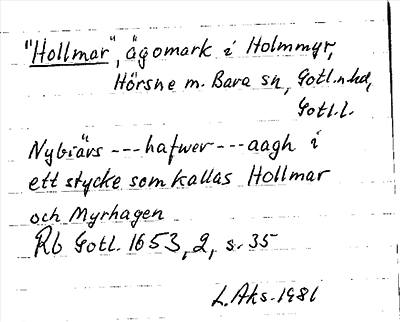 "Hollmar", ägomark i Holmmyr,
Hörsne m. Bara sn, Gotl. n. hd,
Gotl. l.
Nybiärs --- hafwer --- aagh i
ett stycke som kallas Hollmar
och Myrhagen
Rb Gotl. 1653, 2, s. 35
L. Aks. 1981